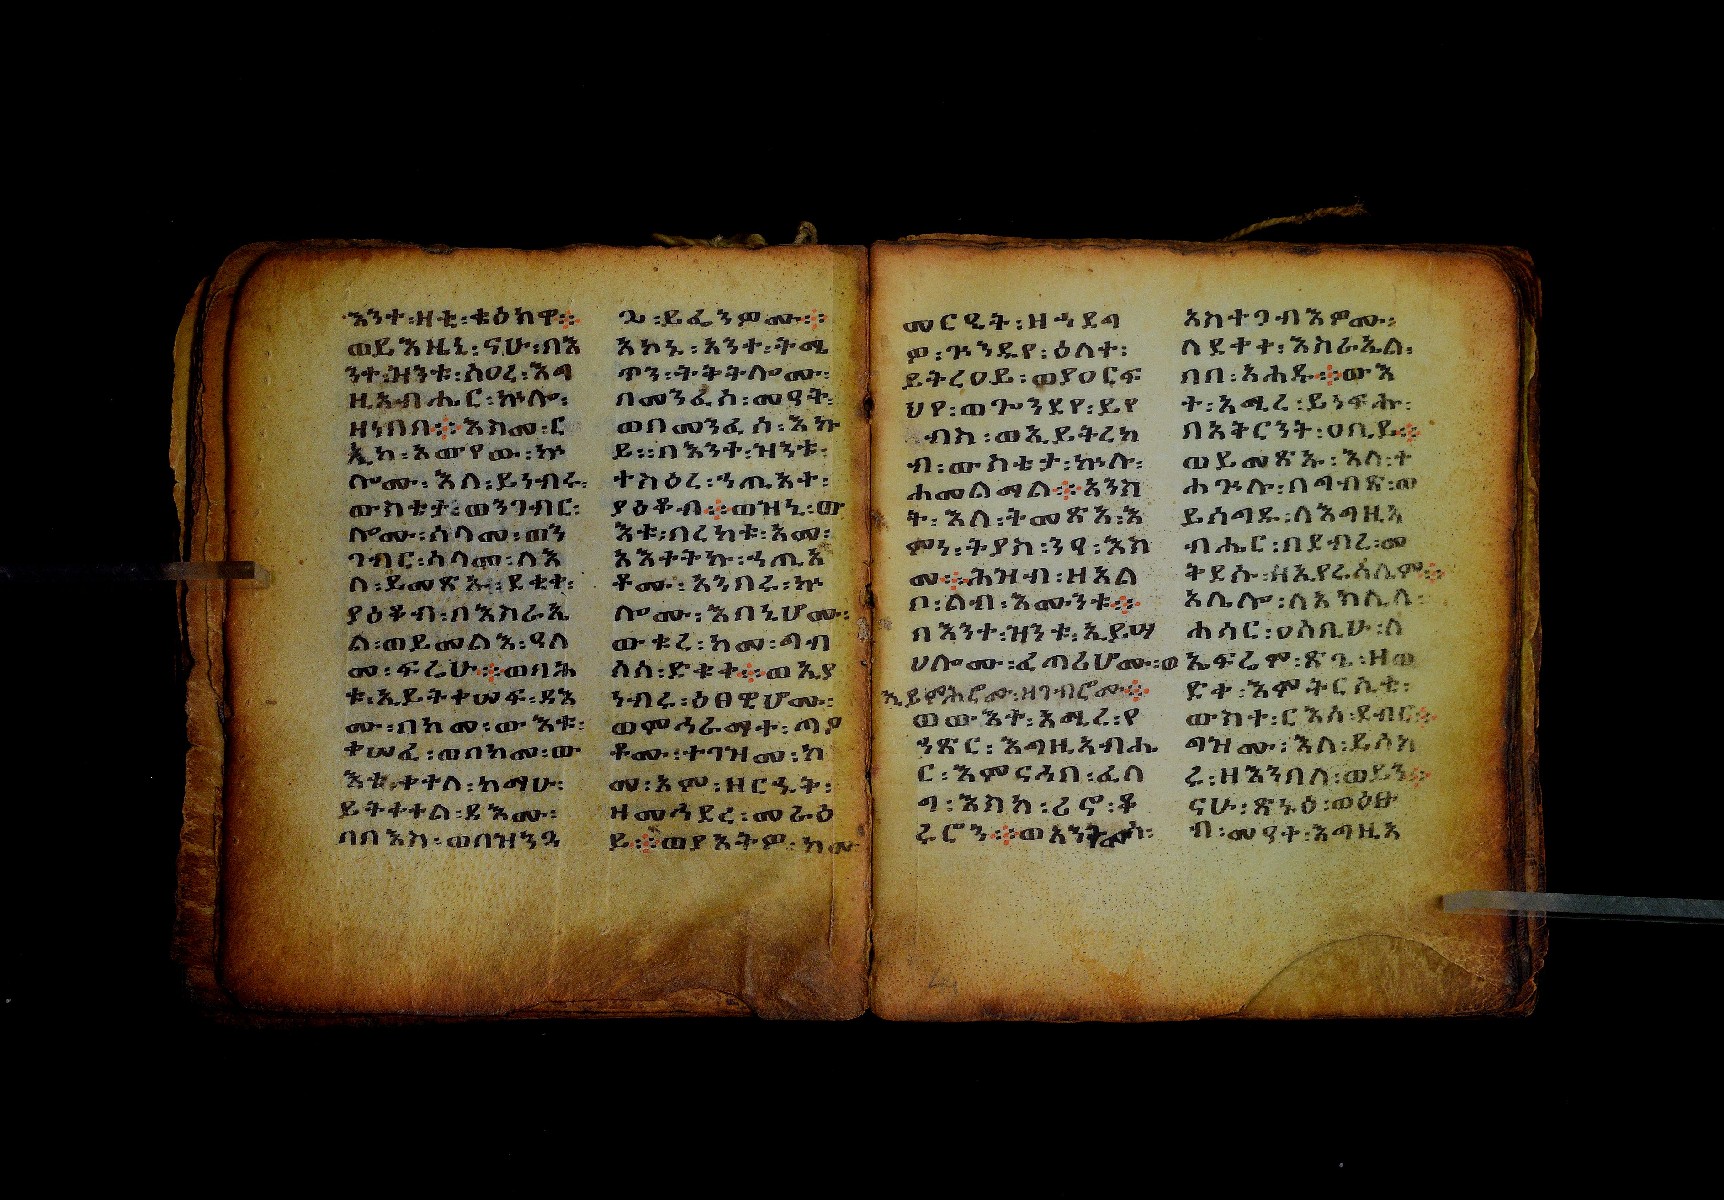 እንተ፡ዛቲ፡ቱዕከዋ፨
ወይእዚኒ፡ናሁ፡በእ
ንተ፡ዝንቱ፡ስዐረ፡እግ
ዚአብሔር፡ኵሎ፡
ዘነበበ፨እስመ፡ር
ኢከ፡አመየው፡ኵ
ሎሙ፡እለ፡ይነብሩ፡
ውስቴታ፡ወንገብር፡
ሎሙ፡ሰላመ፡ወን
ገብር፡ሰላመ፡ለእ
ለ፡ይመጽኡ፡ደቂቀ፡
ያዕቆብ፡በእስራኤ
ል፡ወይመልእ፡ዓለ
መ፡ፍሬሁ፨ወባሕ
ቱ፡ኢይትቀሠፍ፡ዳእ
ሙ፡በከመ፡ውእቱ፡
ቀሠፈ፡ወበከመ፡ው
እቱ፡ቀተለ፡ከማሁ፡
ይትቀተል፡ዳእሙ፡
በበእስ፡ወበዝንጓ
ጔ፡ይፌንዎሙ፨
አኮኑ፡አንተ፡ትሜ
ጥን፡ትትትሎሙ፡
በመንፈስ፡መዓት፡
ወበመንፈሰ፡እኩ
ይ፡፡በእንተ፡ዝንቱ፡
ተስዕረ፡ኀጢአት፡
ያዕቆብ፨ወዝኒ፡ው
እቱ፡በረከቱ፡አመ፡
አእተትኩ፡ኀጢአ
ቶሙ፡አንበሩ፡ኵ
ሎሙ፡እበኒሆሙ፡
ውቁረ፡ከመ፡ሐብ
ለሰ፡ድቁቀ፨ወኢያ
ነብሩ፡ዕፀዊሆሙ፡
ወምኅራማተ፡ጣዖ
ቶሙ፡ተገዝሙ፡ከ
መ፡ኦም፡ዘርኁቅ፡
ዘመኅደረ፡መራዕ
ይ፨ወያአትም፡ከመ
መርዔት፡ዘኀደጋ
ዎ፡ጕንዱየ፡ዕለተ፡
ይትረዐይ፡ወያዐርፍ
ህየ፡ወጐንደየ፡ይየ
ብስ፡ወኢይትረከ
ብ፡ውስቴታ፡ኵሉ፡
ሐመልማል፨አንስ
ት፡እለ፡ትመጽእ፡እ
ምነ፡ትያስ፡ንዓ፡እስ
መ፨ሕዝብ፡ዘአል
ቦ፡ልብ፡እሙንቱ፨
በእንተ፡ዝንቱ፡ኢይሣ
ሀሎሙ፡ፈጣሪሆሙ፡ወ
ኢይምሕሮሙ፡ዘገብሮሙ፨
ወውእተ፡አሚረ፡የ
ኀጽር፡እግዚአብሔ
ር፡እምናሕበ፡ፈለ
ግ፡እስከ፡ሪኖ፡ቆ
ሩሮን፨ወአንትሙሰ፡
አስተጋብእዎሙ፡
ለደቂቀ፡እስራኤል፡
በበ፡አሐዱ፨ውእ
ተ፡አሚረ፡ይነፍሑ፡
በአቅርንት፡ዐቢይ፨
ወይመጽኡ፡እለ፡ተ
ሐጕሉ፡በግብጽ፡ወ
ይሰግዱ፡ለእግዚአ
ብሔር፡በደብረ፡መ
ቅደሱ፡ዘኢየሩሳሌም፨
አሌሎ፡ለአክሊለ፡
ሐሳር፡ዐስቢሁ፡ለ
ኤፍሬም፡ጽጌ፡ዘወ
ድቀ፡እምትርሲቱ፡
ውስተ፡ርእሰ፡ደብር፨
ግዝሙ፡እለ፡ይሰክ
ሩ፡ዘእንበለ፡ወይን፨
ናሁ፡ጽኑዕ፡ወዕፁ
ብ፡መዓተ፡እግዚአ